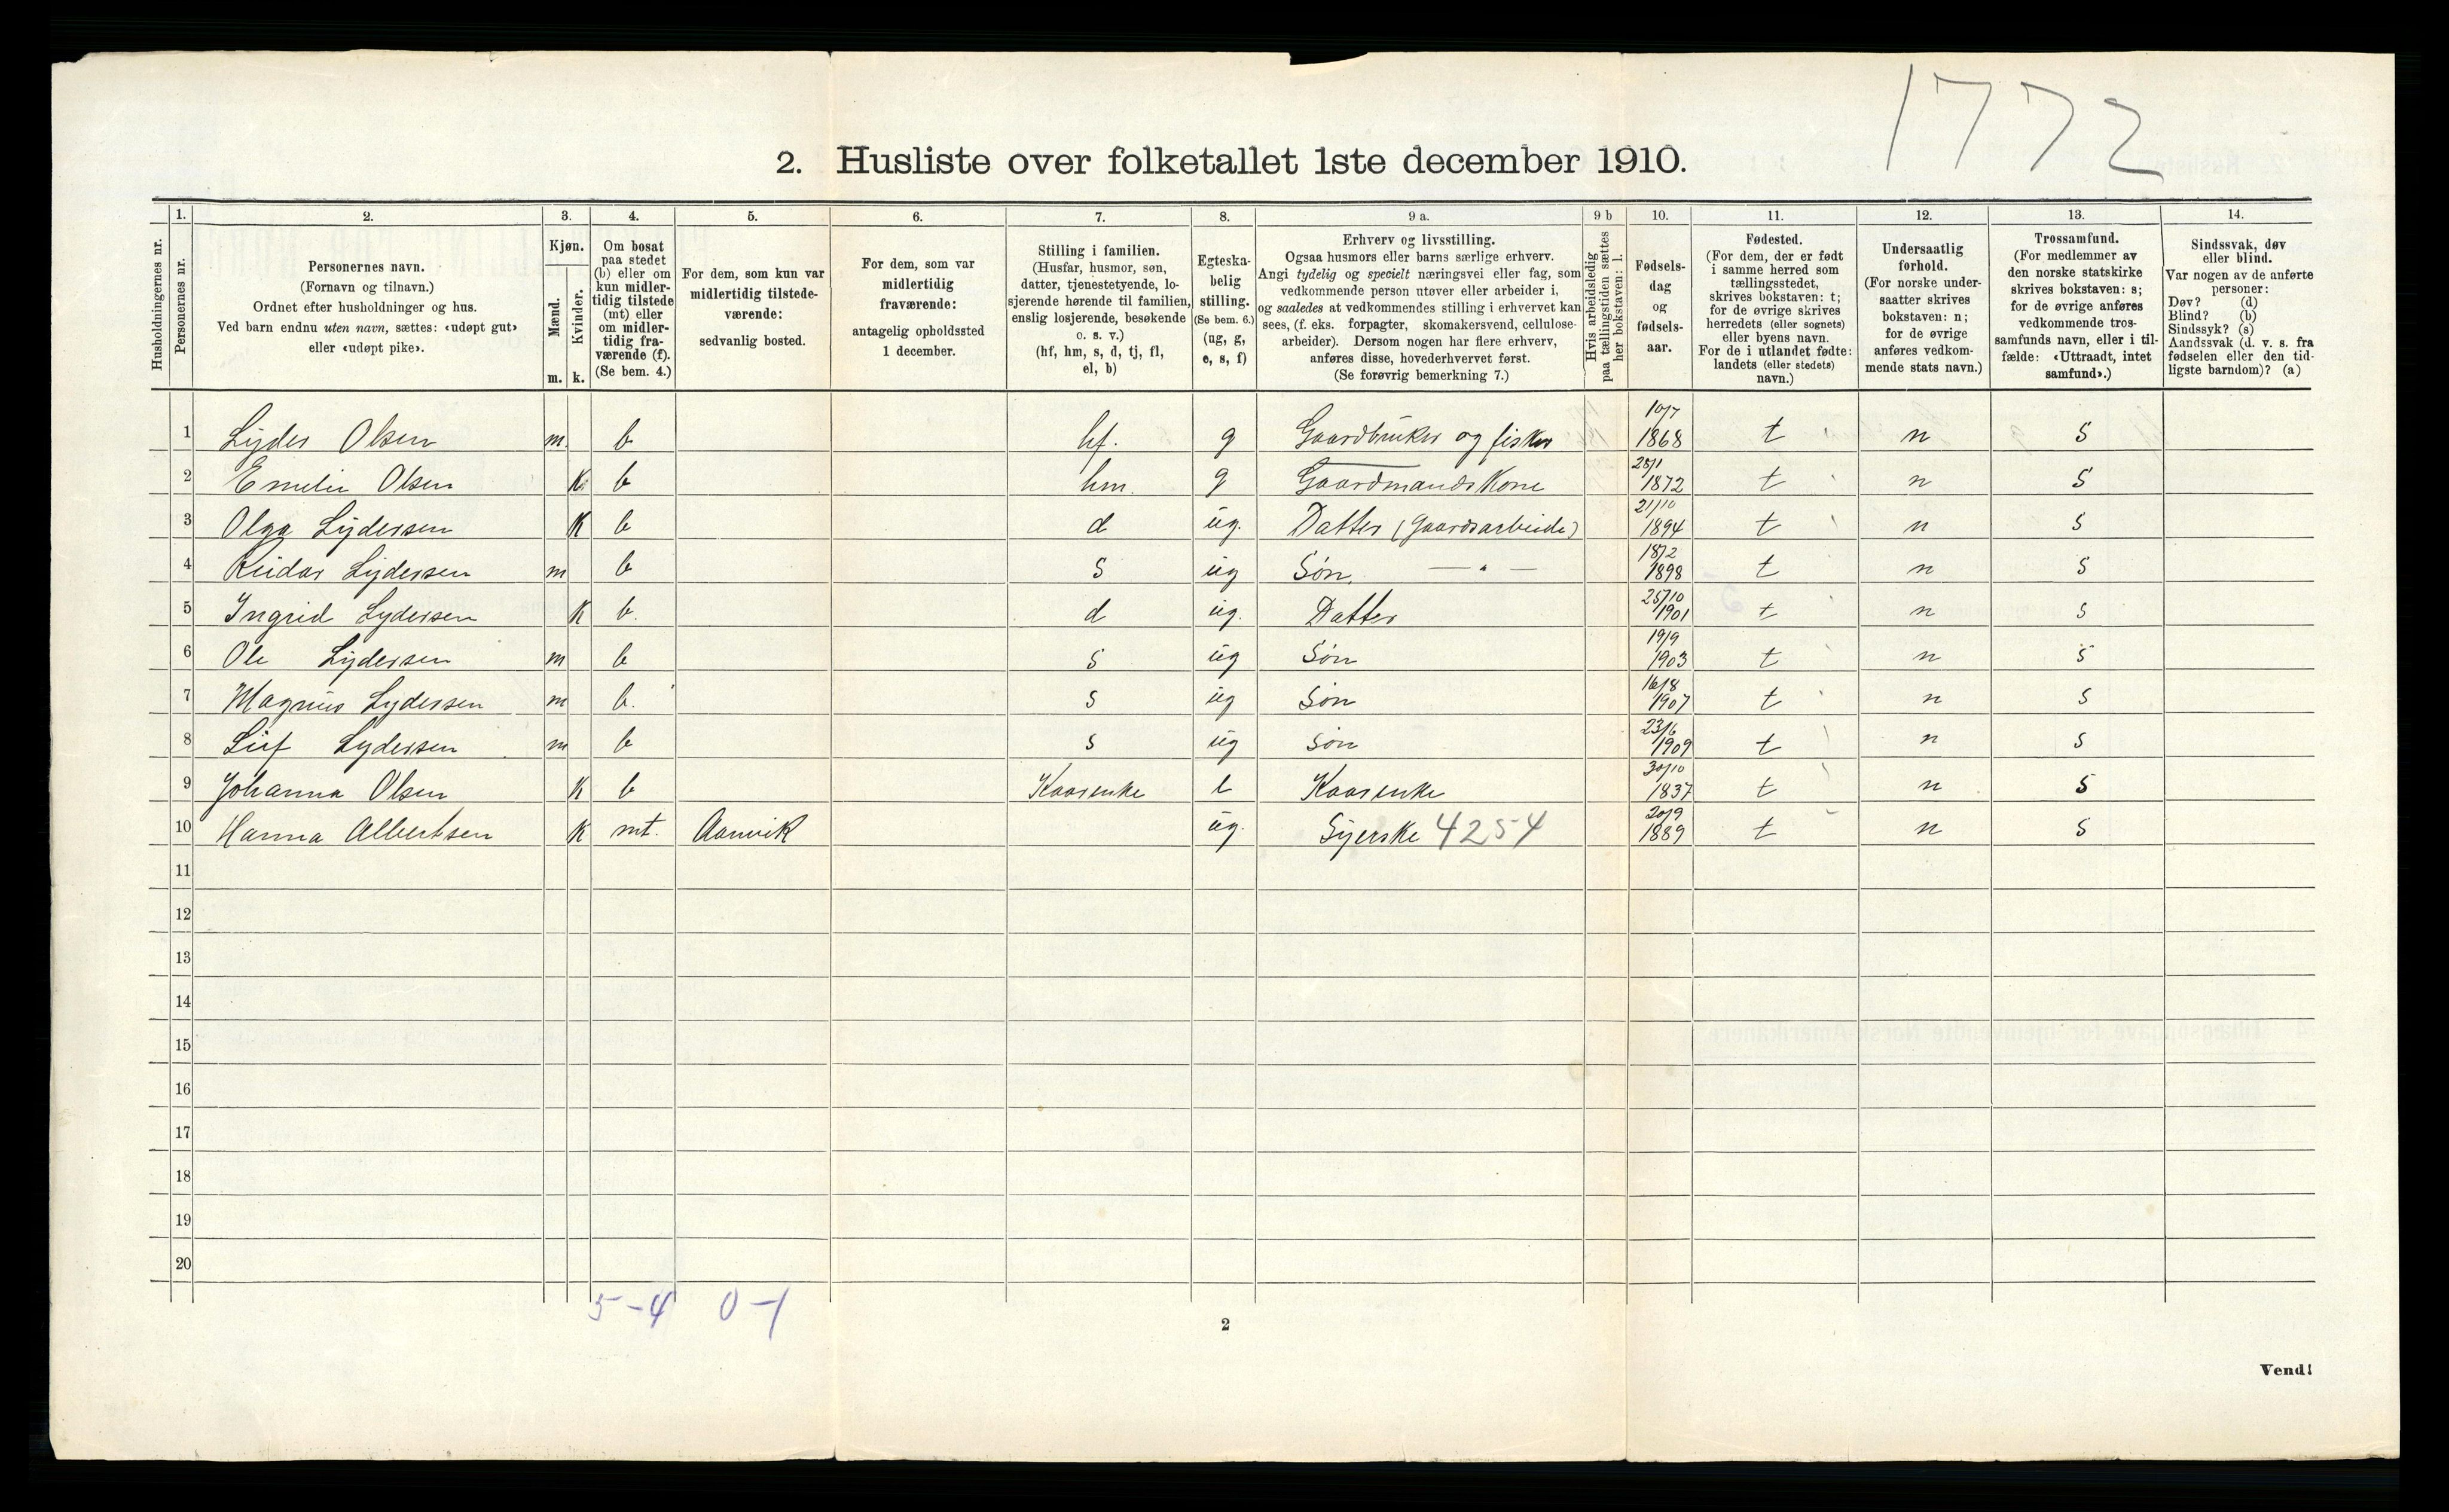 1772
2. Husliste over folketallet 1ste december 1910.
Husholdningernes nr.
1. Personernes nr.
2. Personernes navn. (Fornavn og tilnavn.) Ordnet efter husholdninger og hus. Ved barn endnu uten navn, sættes: «udøpt gut» eller «udøpt pike».
3. Kjøn. Mænd. m. Kvinder. k.
4. Om bosat paa stedet (b) eller om kun midlertidig tilstede (mt) eller om midlertidig fraværende (f). (Se bem. 4.)
5. For dem, som kun var midlertidig tilstedeværende: sedvanlig bosted.
6. For dem, som var midlertidig fraværende: antagelig opholdssted 1 december.
7. Stilling i familien. (Husfar, husmor, søn, datter, tjenestetyende, losjerende hørende til familien, enslig losjerende, besøkende o. s. v.) (hf, hm, s, d, tj, fl, el, b)
8. Egteskabelig stilling. (Se bem. 6.) (ug, g, e, s, f)
9 a. Erhverv og livsstilling. Ogsaa husmors eller barns særlige erhverv. Angi tydelig og specielt næringsvei eller fag, som vedkommende person utøver eller arbeider i, og saaledes at vedkommendes stilling i erhvervet kan sees, (f. eks. forpagter, skomakersvend, cellulosearbeider). Dersom nogen har flere erhverv, anføres disse, hovederhvervet først. (Se forøvrig bemerkning 7.)
9 b Hvis arbeidsledig paa tællingstiden sættes her bokstaven: l.
10. Fødselsdag og fødselsaar.
11. Fødested. (For dem, der er født i samme herred som tællingsstedet, skrives bokstaven: t; for de øvrige skrives herredets (eller sognets) eller byens navn. For de i utlandet fødte: landets (eller stedets) navn.)
12. Undersaatlig forhold. (For norske undersaatter skrives bokstaven: n; for de øvrige anføres vedkommende stats navn.)
13. Trossamfund. (For medlemmer av den norske statskirke skrives bokstaven: s; for de øvrige anføres vedkommende trossamfunds navn, eller i tilfælde: «Uttraadt, intet samfund».)
14. Sindssvak, døv eller blind. Var nogen av de anførte personer: Døv? (d) Blind? (b) Sindssyk? (s) Aandssvak (d. v. s. fra fødselen eller den tidligste barndom)? (a)
1 Lyder Olsen m. b hf. g Gaardbruker og fisker 10/7 1868 t n S
2 Emelie Olsen K b hm. g Gaardmands Kone 25/1 1872 t n S
3 Olga Lydersen K b d ug. Datter (gaardsarbeide) 21/10 1894 t n S
4 Reidar Lydersen m b S ug Søn. — " — 18/2 1898 t n S
5 Ingrid Lydersen K b. d ug. Datter 25/10 1901 t n S
6 Ole Lydersen m b S ug Søn 19/9 1903 t n S
7 Magnus Lydersen m b. S ug Søn 16/8 1907 t n S
8 Leif Lydersen m b S ug Søn 23/6 1909 t n S
9 Johanna Olsen K b Kaarenke e Kaarenke 30/10 1837 t n S
10 Hanna Albertsen K mt. Aanvik ug. Syerske 4254 20/9 1889 t n S
11
12
13
14
15
16
17
18
19
20
5-4 0-1
2
Vend!